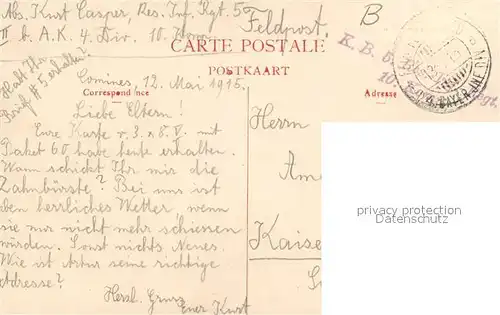 Abs. Kurt Casper, Res. Inf. Rgt. 5
II b. A.K. 4. Div. 10. Komp.
Feldpost.
B
CARTE POSTALE
POSTKAART
Habt Ihr
Brief # 5 erhalten?
K. B.
Comines, 12. Mai 1915.
Correspondence
Adresse
BAYER.
Liebe Eltern!
Eure Karte v. 3. & 8. V. mit
Paket 60 habe heute erhalten.
Wann schickt Ihr mir die
Zahnbürste? Bei uns ist
eben herrliches Wetter wenn
sie nur nicht mehr schiessen
würden. Sonst nichts Neues.
Wie ist Artur seine richtige
Adresse?
Herzl. Gruss
Euer Kurt
Herrn
Kaise
privacy protection
Datenschutz
protection des données